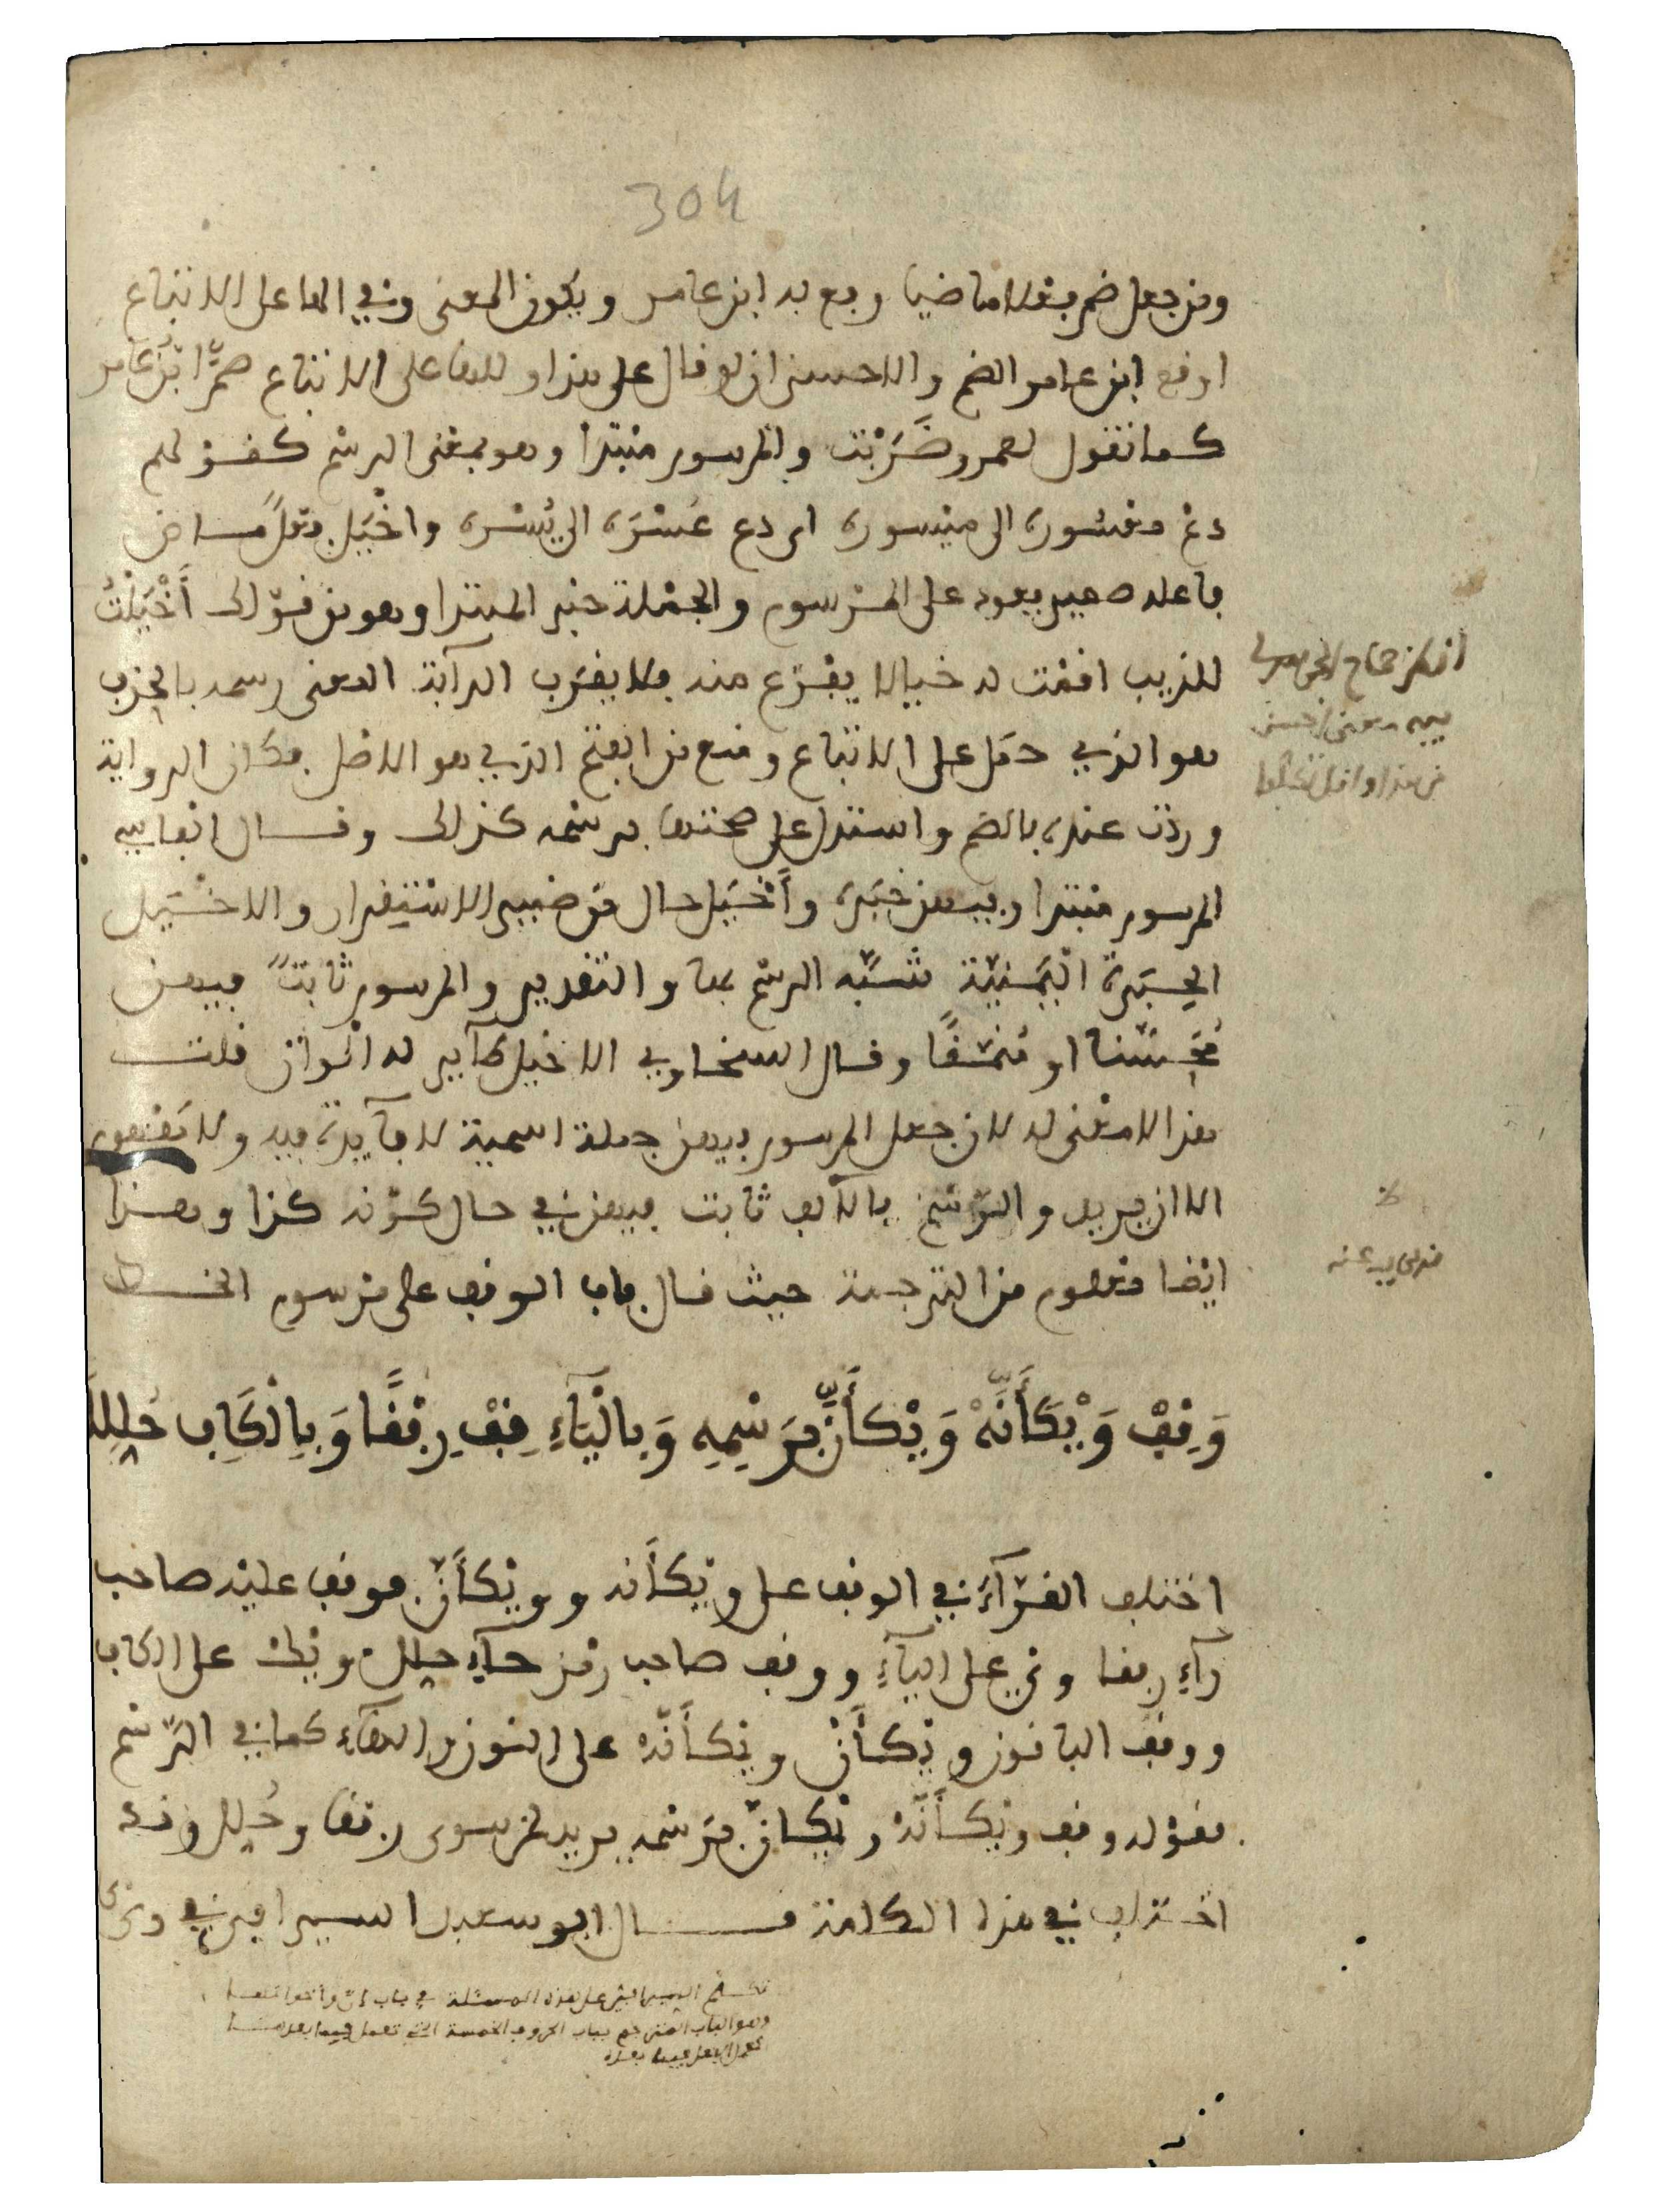 304
ومن جعل ضم فعلا ماضيا رفع به ابن عامر ويكون المعنى وفي الها على الاتباع
اوقع ابن عامر الضم والاحسن ان لو قال على هذا وللها على الاتباع ضمَّ ابنُ عامر
كما تقول لعمرو ضَرَبْت والمرسوم مبتدأ وهو بمعنى الرسم كقولهم
دع معسوره الى ميسوره اي دع عُسْرَه الى يُسْره واخْيَل فعلٌ ماض
فاعله ضمير يعود على المرسوم والجملة خبر المبتدا وهو من قولك أَخْيَلْتُ
للذيب اقمت له خيالا يفزع منه فلا يقرب الدآبة المعنى رسمه بالحذف
هو الذي حمل على الاتباع ومنع من الفتح الذي هو الاصل فكان الرواية
وردت عنده بالضم واستدل على صحتها برسمه كذلك وقال الفاسي
المرسوم مبتدا وفيهن خبره وأَخْيَل حال من ضمير الاستقرار والاخْيَل
الحِبَرة اليمنيّة شبّه الرسم بها والتقدير والمرسوم ثابتٌ فيهن
مُحَسّنا او مُنمّقًا وقال السخاوي الاخيل طآير له الوان قلت
هذا لا معنى له لان جعل المرسوم فيهن جملة اسمية لا فآيدة فيه ولا مفهوم
الا ان يريد والرّسْم بالالف ثابت فيهن في حال كوْنه كذا وهذا
ايضا معلوم من الترجمة حيث قال باب الوقف على مرسوم الخط
وَقِفْ وَيْكَأَنَّهْ وَيْكَأَنَّ بِرَسْمِهِ وَبِالْيَآءِ قِفْ رِفْقًا وَبِالْكَافِ حُلِّلَا
اختلف القرّآء في الوقف على ويْكأنه وويْكأنّ فوقف عليْه صاحب
رآءِ رفقا وي على اليآءِ ووقف صاحب رمز حآءِ حلل ويْك على الكاف
ووقف الباقون ويْكأنْ ويْكأنّهْ على النون والهآء كما في الرّسْم
فقوله وقف ويْكأنّهْ ويْكأنّ برَسْمه يريد لمن سوى رفقا وحُلل وقد
اختلف في هذه الكلمة قال ابو سعيد السيرافي في وي
انظر صحاح الجوهري
فيه معنى احسن
من هذا واقل تكلفا
تكلم السيرافي على هذه المسئلة في باب انّ واخواتها
وهو الباب المترجم بباب الحروف الخمسة التي تعمل فيما بعدها
كعمل الفعل فيما بعده